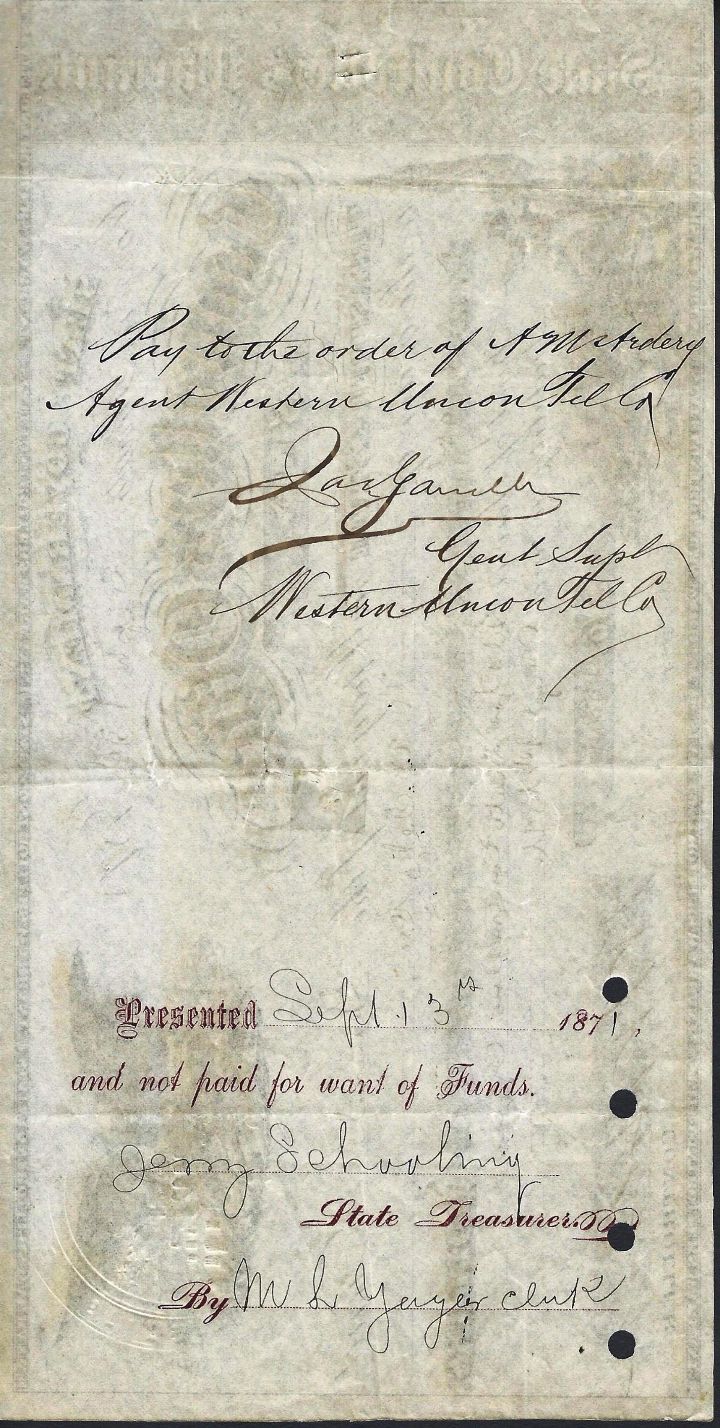 Pay to the order of A M Ardery
Agent Western Union Tel Co
Jas Gamble
Genl Supt
Western Union Tel Co
Presented Sept. 13th 1871,
and not paid for want of Funds.
Jerry Schooling
State Treasurer.
By M L Yager clerk